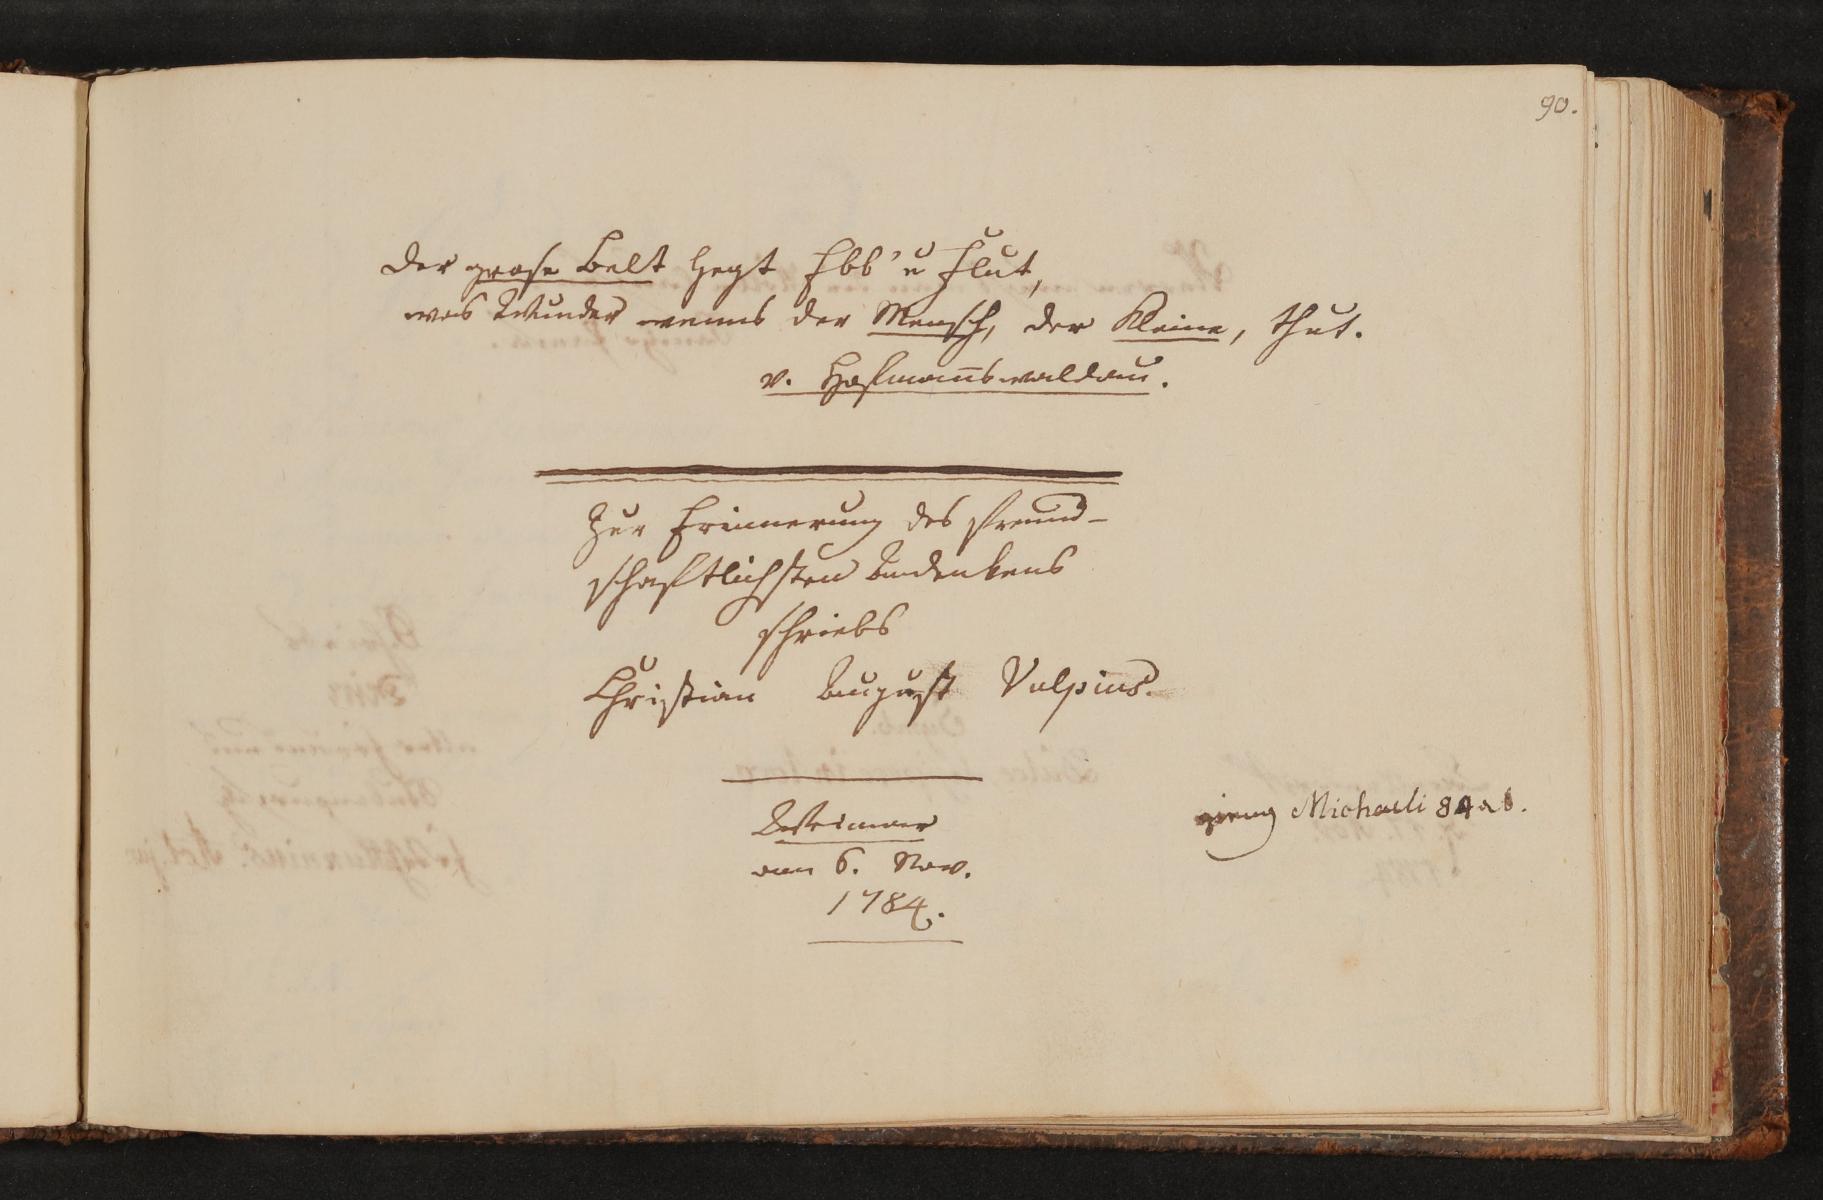 90.
Der grose Belt hegt Ebb' u Flut,
was Wunder wenns der Mensch, der Kleine, thut.
v. Hofmannswaldau.
Zur Erinnerung des freund-
schaftlichsten Andenkens
schriebs
Christian August Vulpius.
Weimar
am 6. Nov.
1784.
gieng Michaeli 84 ab.